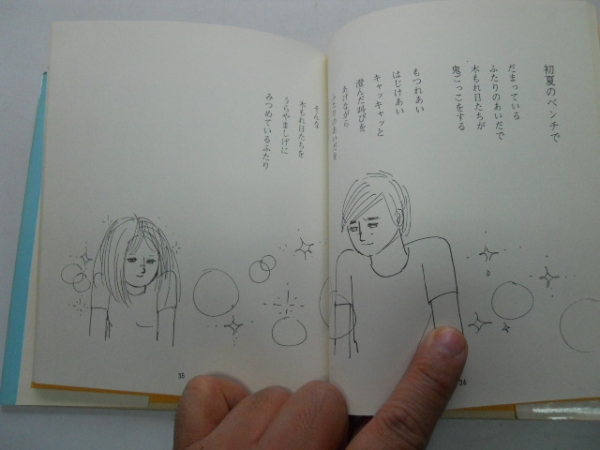 初夏のベンチで
だまっている
ふたりのあいだで
木もれ日たちが
鬼ごっこをする
もつれあい
はじけあい
キャッキャッと
澄んだ叫びを
あげながら
ふたりのあいだを
そんな
木もれ日たちを
うらやましげに
みつめているふたり
35
34